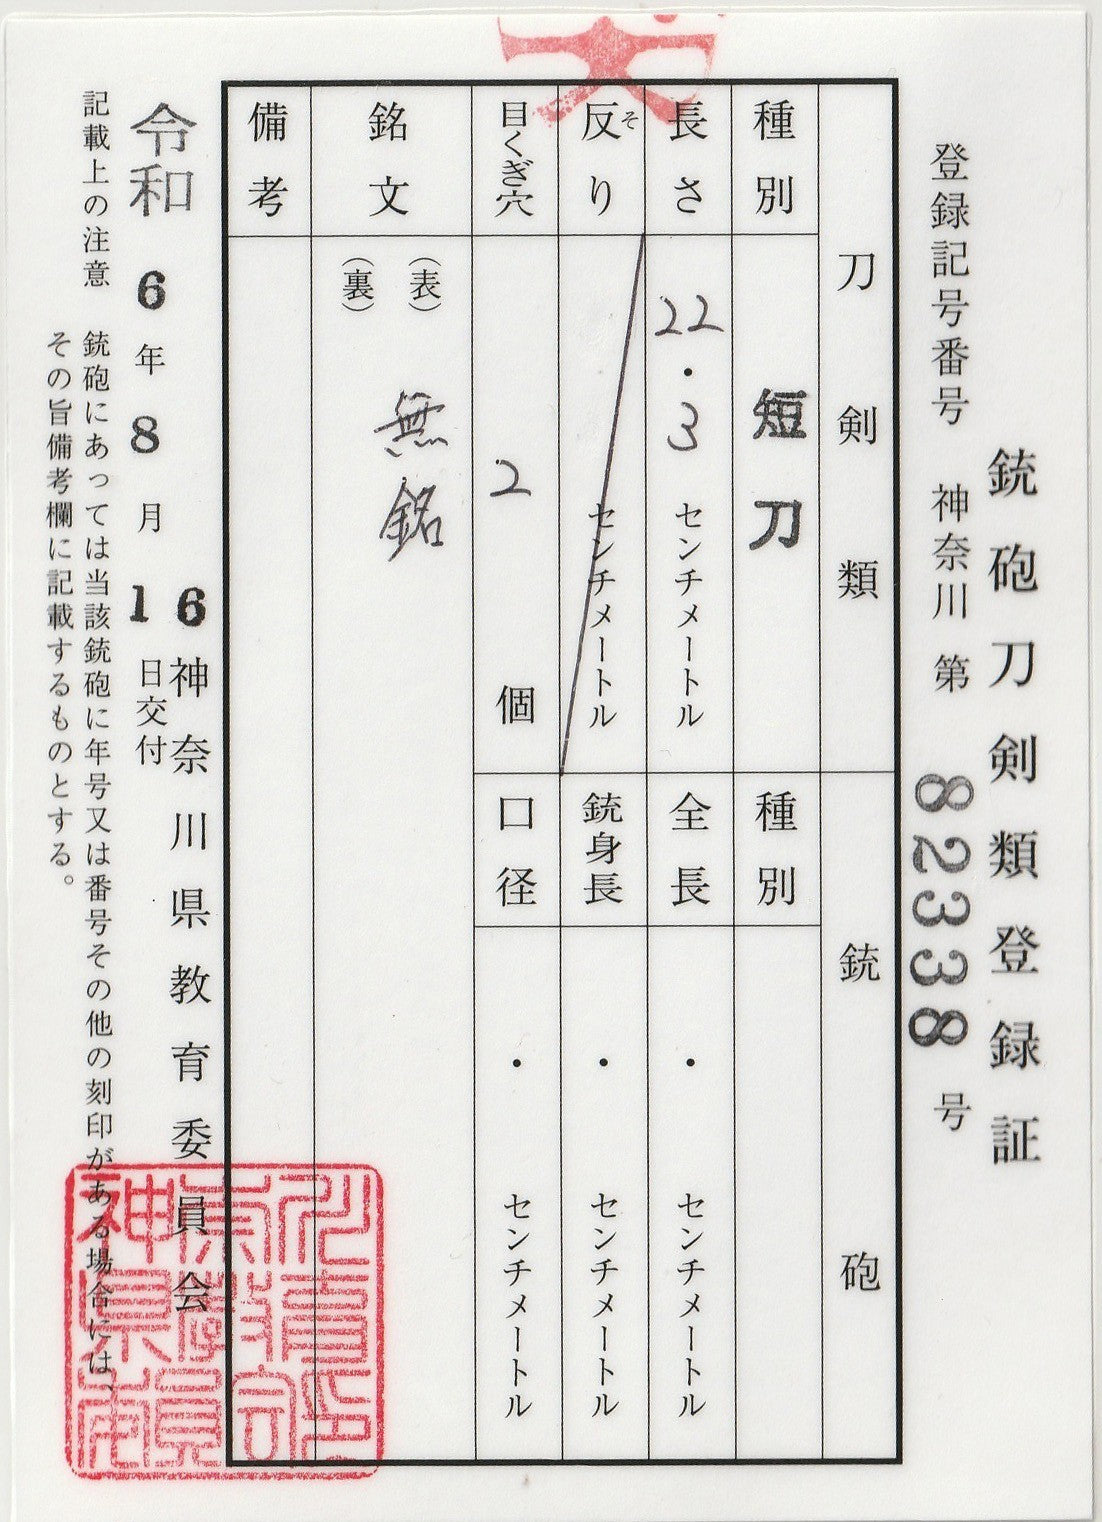 銃砲刀剣類登録証
登録記号番号 神奈川 第 82338 号
刀剣類
種別
短刀
長さ
22.3 センチメートル
反り
そ
センチメートル
目くぎ穴
2 個
銘文
(表)
(裏)
無銘
備考
銃砲
種別
全長
・ センチメートル
銃身長
・ センチメートル
口径
・ センチメートル
令和 6 年 8 月 16 日交付
神奈川県教育委員会
記載上の注意 銃砲にあっては当該銃砲に年号又は番号その他の刻印がある場合には、
その旨備考欄に記載するものとする。